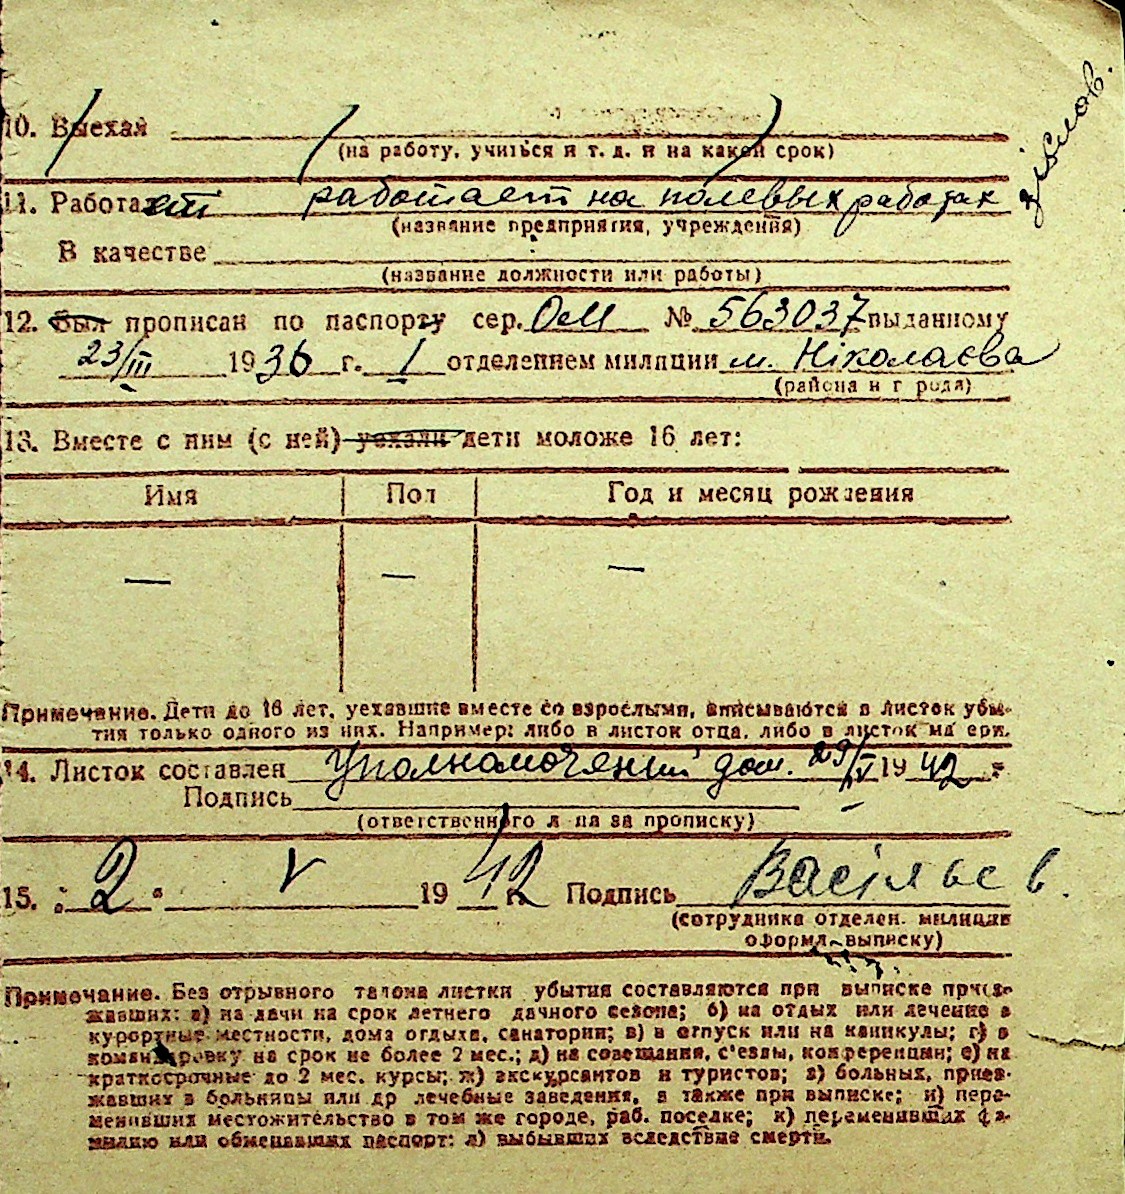 10. Выехал
(на работу, учиться и т. д. и на какой срок)
11. Работает работает на полевых работах
(название предприятия, учреждения)
В качестве
(название должности или работы)
12. Был прописан по паспорту сер. ОМ № 563037 выданному
23/III 1936 г. 1 отделением милиции м. Ніколаєва
(района и города)
13. Вместе с ним (с ней) уехали дети моложе 16 лет:
Имя Пол Год и месяц рождения
— — —
Примечание. Дети до 16 лет, уехавшие вместе со взрослыми, вписываются в листок убы-
тия только одного из них. Например: либо в листок отца, либо в листок матери.
14. Листок составлен Уполномочений дом. 29/IV 1942 г.
Подпись
(ответственного лица за прописку)
15. „2“ V 1942 г. Подпись Васільєв.
(сотрудника отделен. милиции
оформл. выписку)
Примечание. Без отрывного талона листки убытия составляются при выписке приез-
жавших: а) на дачи на срок летнего дачного сезона; б) на отдых или лечение в
курортные местности, дома отдыха, санатории; в) в отпуск или на каникулы; г) в
командировку на срок не более 2 мес.; д) на совещания, с'езды, конференции; е) на
краткосрочные до 2 мес. курсы; ж) экскурсантов и туристов; з) больных, приез-
жавших в больницы или др лечебные заведения, а также при выписке; и) пере-
менивших местожительство в том же городе, раб. поселке; к) переменивших фа-
милию или обменявших паспорт; л) выбывших вследствие смерти.